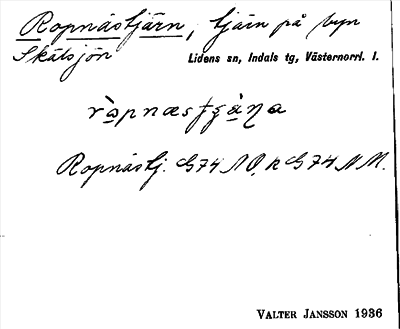 Ropnästjärn, tjärn på byn
Skätsjön Lidens sn, Indals tg, Västernorrl. l.
Ropnästj. G74 NO, k G74 NM.
VALTER JANSSON 1936